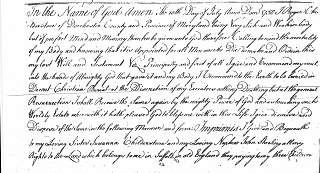 In the Name of God Amen. The
of Dorchester County and Province of Maryland being Very Sick and Weak in body
but of perfect Mind and Memory thanks be given unto God therefore Calling to mind the mortality
of my Body and knowing that it is appointed for all Men once to Die do make and Ordain this
my last Will and Testament Viz Principally and first of all I give and Recommend my soul
into the hands of Almighty God that gave it and my Body I Recommend to the Earth to be buried in
Decent Christian Burial at the Discretion of my Executors nothing Doubting but at the general
Resurrection I shall Receive the same again by the mighty Power of God and as touching such
Worldly Estate wherewith it hath pleased God to bless me with in this Life I give demise and
Dispose of the same in the following Manner and form I give and Bequeath
to my Loving Sister Susanna and my Loving Nephew John Sterling all my
Rights to the Land which belongs to me in Suffolk in old England they paying to my three